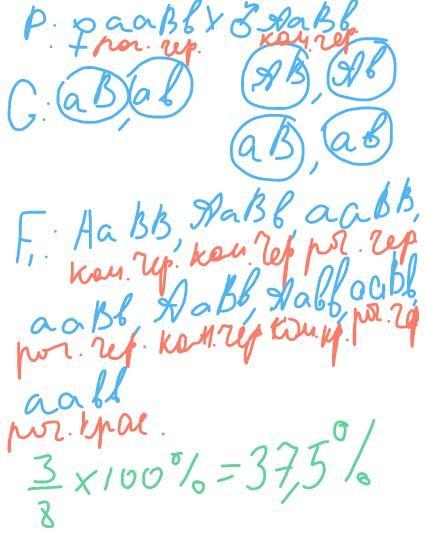 P: ♀ aaBb x ♂ AaBb
рог. чер. ком.чер
G: aB, ab AB, Ab
aB, ab
F₁: AaBB, AaBb, aaBB,
ком.чер. ком.чер рог. чер
aaBb, AaBb, Aabb, aaBb,
рог. чер. ком.чер ком.кр. рог.че
aabb
рог. крас.
3/8 x 100% = 37,5%